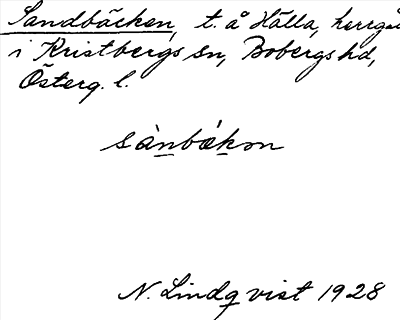 Sandbäcken, t. å Hälla, herrgå
i Kristbergs sn, Bobergs hd,
Österg. l.
sànbǽkon
N. Lindqvist 1928